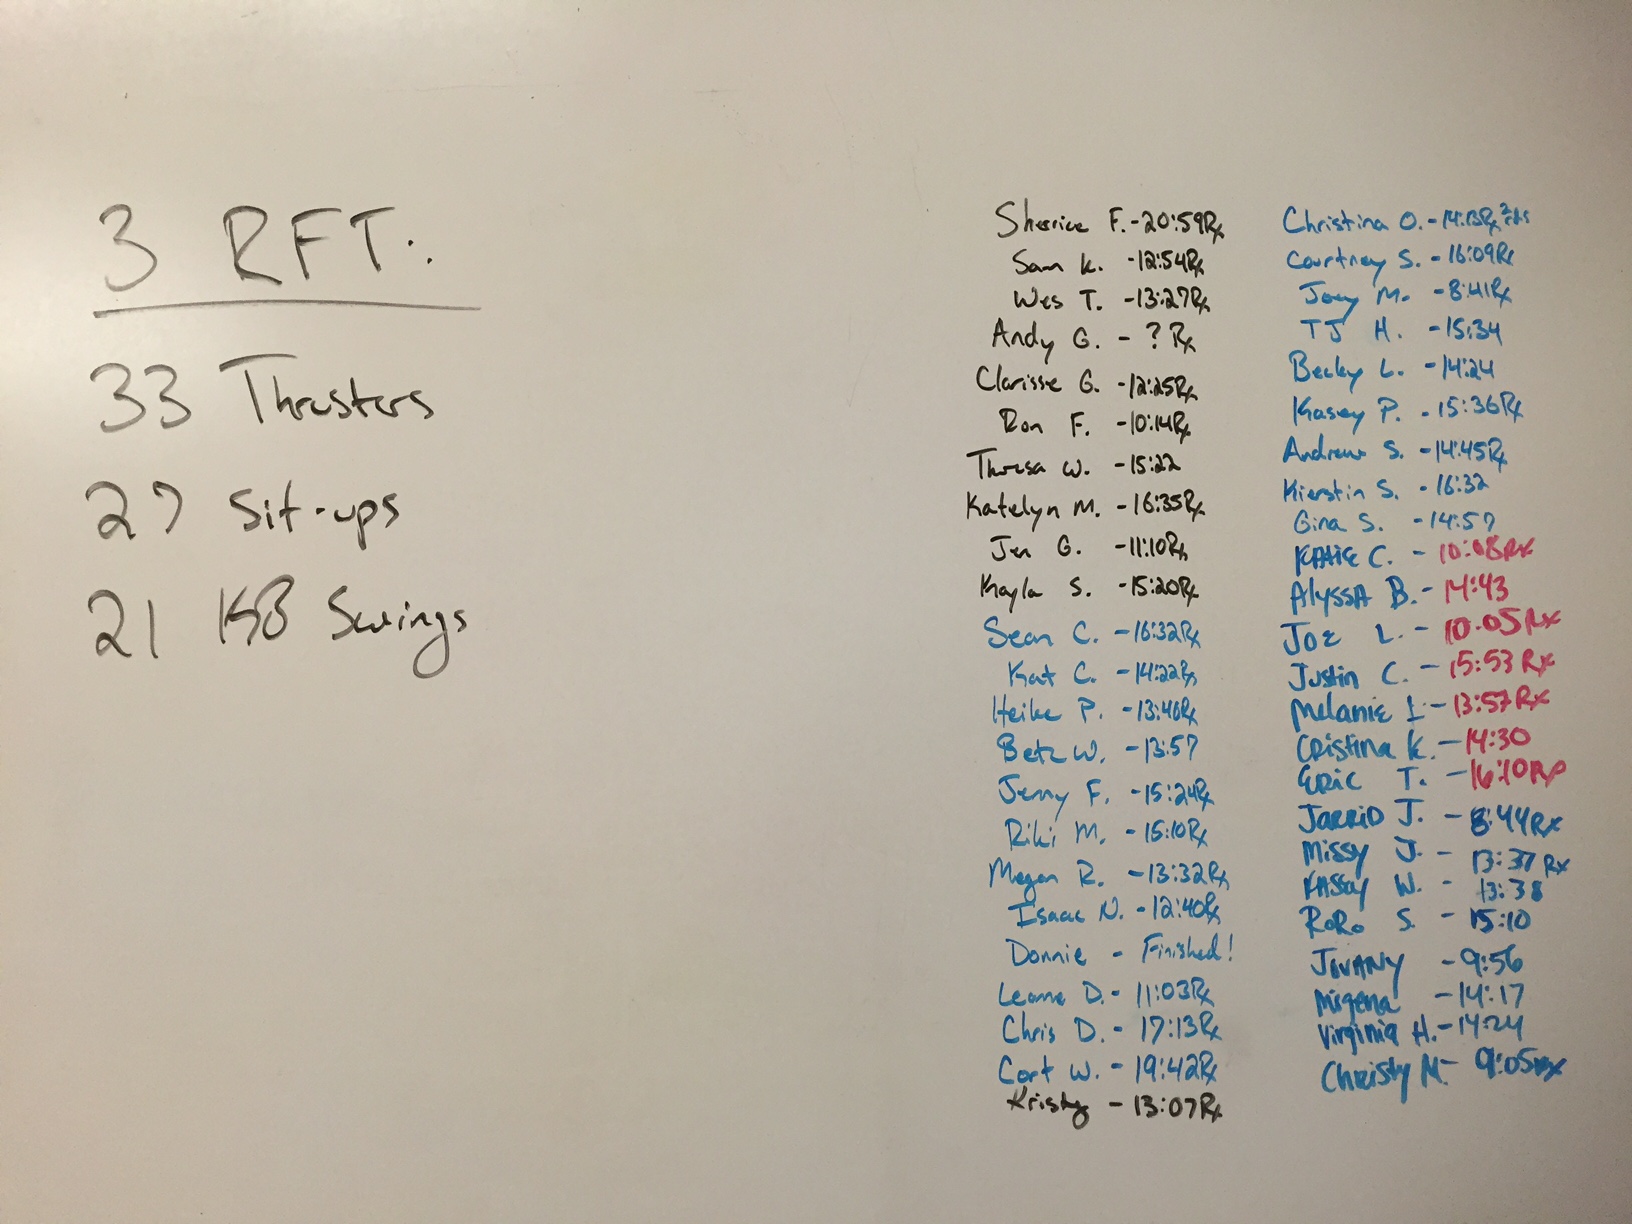 3 RFT:
33 Thrusters
27 Sit-ups
21 KB Swings
Sherrice F. - 20:59Rx
Sam K. - 12:54Rx
Wes T. - 13:27Rx
Andy G. - ? Rx
Clarisse G. - 12:25Rx
Ron F. - 10:14Rx
Theresa W. - 15:22
Katelyn M. - 16:35Rx
Jen G. - 11:10Rx
Kayla S. - 15:20Rx
Sean C. - 16:32Rx
Kat C. - 14:22Rx
Heike P. - 13:46Rx
Betz W. - 13:57
Jenny F. - 15:24Rx
Riki M. - 15:10Rx
Megan R. - 13:32Rx
Isaac N. - 12:40Rx
Donnie - Finished!
Leanne D. - 11:03Rx
Chris D. - 17:13Rx
Cort W. - 19:42Rx
Kristy - 13:07Rx
Christina O. - 14:13Rx
Courtney S. - 16:09Rx
Joey M. - 8:41Rx
TJ H. - 15:34
Becky L. - 14:24
Kasey P. - 15:36Rx
Andrew S. - 14:45Rx
Kierstin S. - 16:32
Gina S. - 14:57
Katie C. - 10:08Rx
Alyssa B. - 14:43
Joe L. - 10:05Rx
Justin C. - 15:53Rx
Melanie I - 13:57Rx
Cristina K. - 14:30
Eric T. - 16:10Rx
Jarrid J. - 8:44Rx
Missy J. - 13:37Rx
Kassy W. - 13:38
RoRo S. - 15:10
Jovany - 9:56
Migena - 14:17
Virginia H. - 14:24
Christy M - 9:05Rx